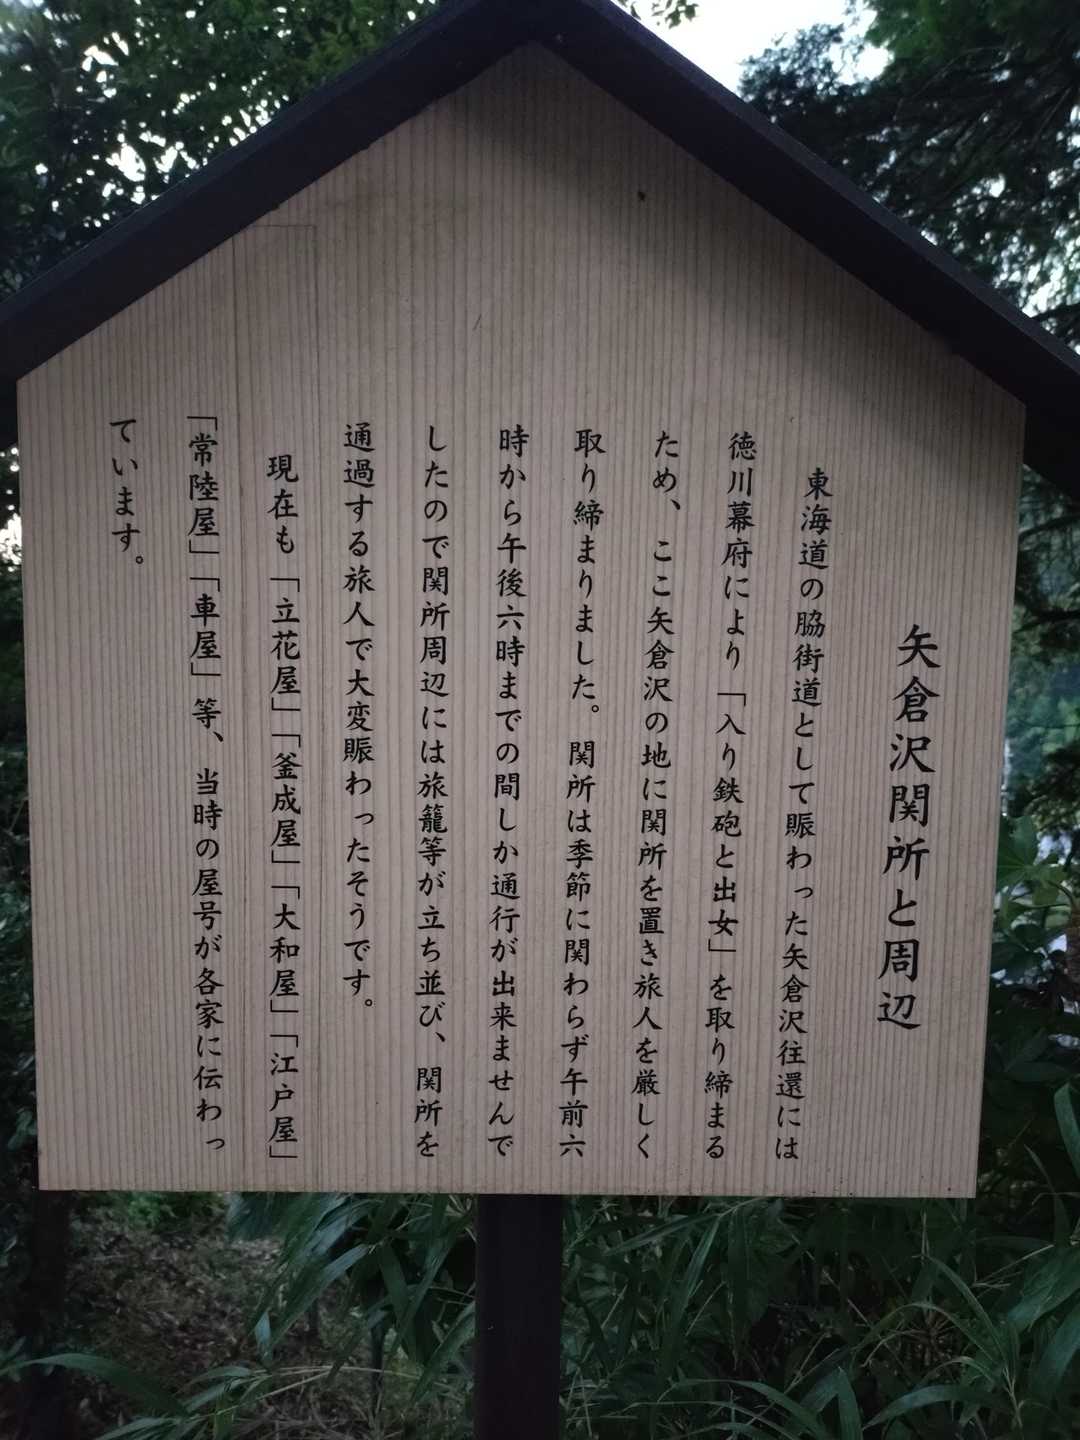 矢倉沢関所と周辺
東海道の脇街道として賑わった矢倉沢往還には
徳川幕府により「入り鉄砲と出女」を取り締まる
ため、ここ矢倉沢の地に関所を置き旅人を厳しく
取り締まりました。関所は季節に関わらず午前六
時から午後六時までの間しか通行が出来ませんで
したので関所周辺には旅籠等が立ち並び、関所を
通過する旅人で大変賑わったそうです。
現在も「立花屋」「釜成屋」「大和屋」「江戸屋」
「常陸屋」「車屋」等、当時の屋号が各家に伝わっ
ています。